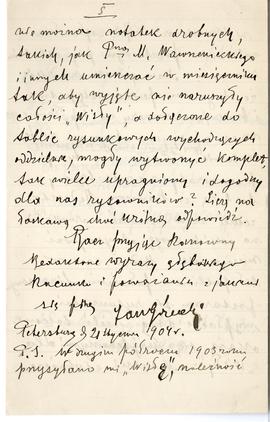 5
wo można notatek drobnych,
takich, jak Pna M. Wawrzenieckiego
i innych umieszczać w miesięczniku
tak, aby wyjęte nie naruszyły
całości „Wisły”, a dołączone do
tablic rysunkowych wychodzących
oddzielnie, mogły wytworzyć komplet
tak wielce upragniony i dogodny
dla nas rysowników? Liczę na
łaskawą choć krótką odpowiedź.
Racz przyjąć Szanowny
Redaktorze wyrazy głębokiego
szacunku i poważania z jakiemi
się piszę
Petersburg d. 21 stycznia 1904 r.
P.S. W drugim półroczu 1903 roku
przysyłano mi „Wisłę”, należność